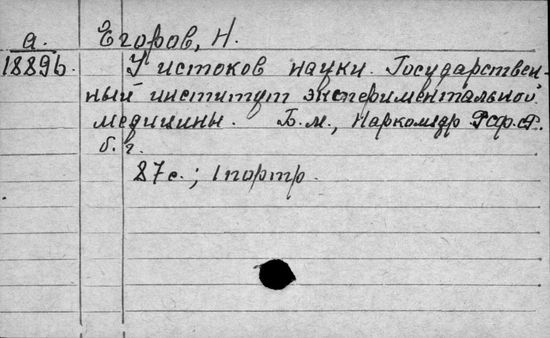 а.
18896
Егоров, Н.
У истоков науки. Государствен-
ный институт экспериментальной
медицины. Б.м., Наркомздр. РСФСР.
б. г.
87с.; 1 портр.